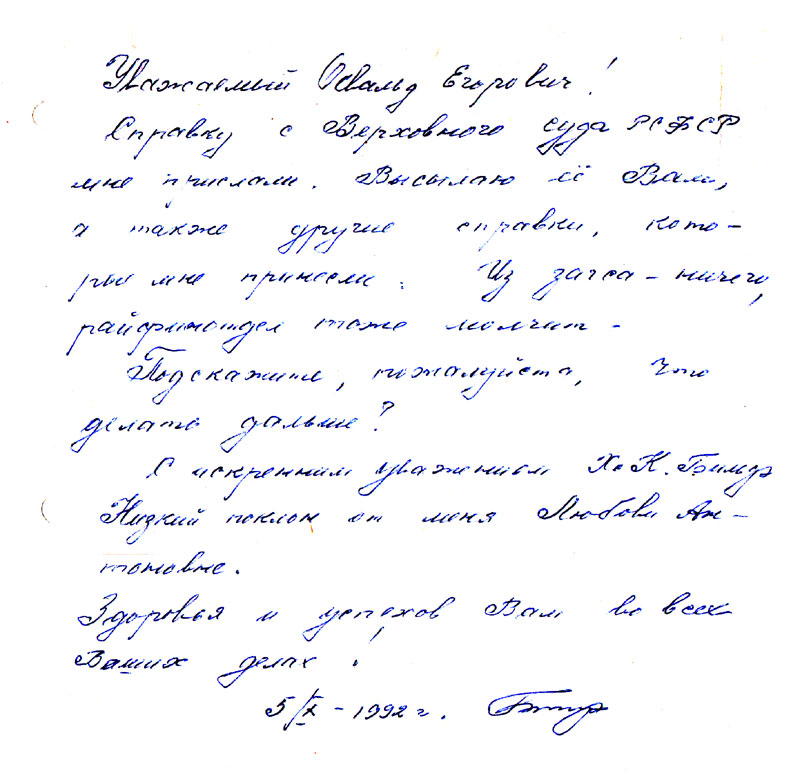 Уважаемый Освальд Егорович!
Справку с Верховного суда РСФСР
мне прислали. Высылаю её Вам,
а также другие справки, кото-
рые мне принесли. Из загса - ничего,
райфинотдел тоже молчит -
Подскажите, пожалуйста, что
делать дальше?
С искренним уважением Х. К.
Низкий поклон от меня Любови Ан-
тоновне.
Здоровья и успехов Вам во всех
Ваших делах!
5/IX - 1992 г.